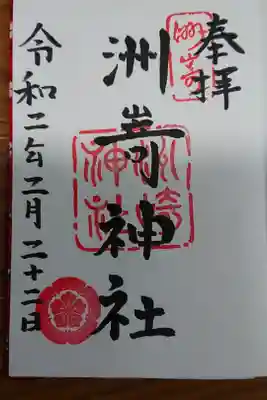 奉拝
洲嵜神社
洲崎
神社
令和二年二月二十二日